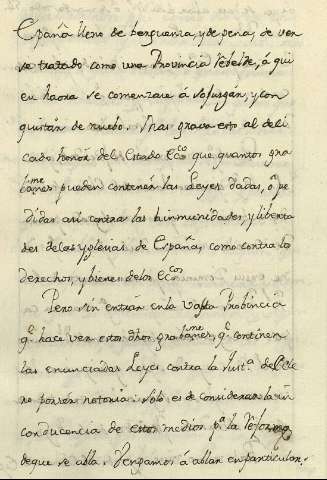 España lleno de berguenza, y de pena, de ver
se tratado como una Provincia Rebelde, á qui
en haora se comenzace á sojusgar, y con
quistar de nuebo. Mas grava esto al deli
cado honor del Estado Ecco que quantos gra
bames pueden contener las Leyes dadas, ó pe
didas asi contra las Ynmunidades y liberta
des de las yglesias de España, como contra los
derechos, y bienes de los Eccos
Pero sin entrar en la vasta Probincia
q.e hace ver estos dhos grabames, q.e contienen
las enunciadas Leyes contra la Just.a del Cle
ro por ser notoria: solo es de considerar la in
conducencia de estos medios p.a la Reforma
de que se abla. Vengamos á ablar en particular.